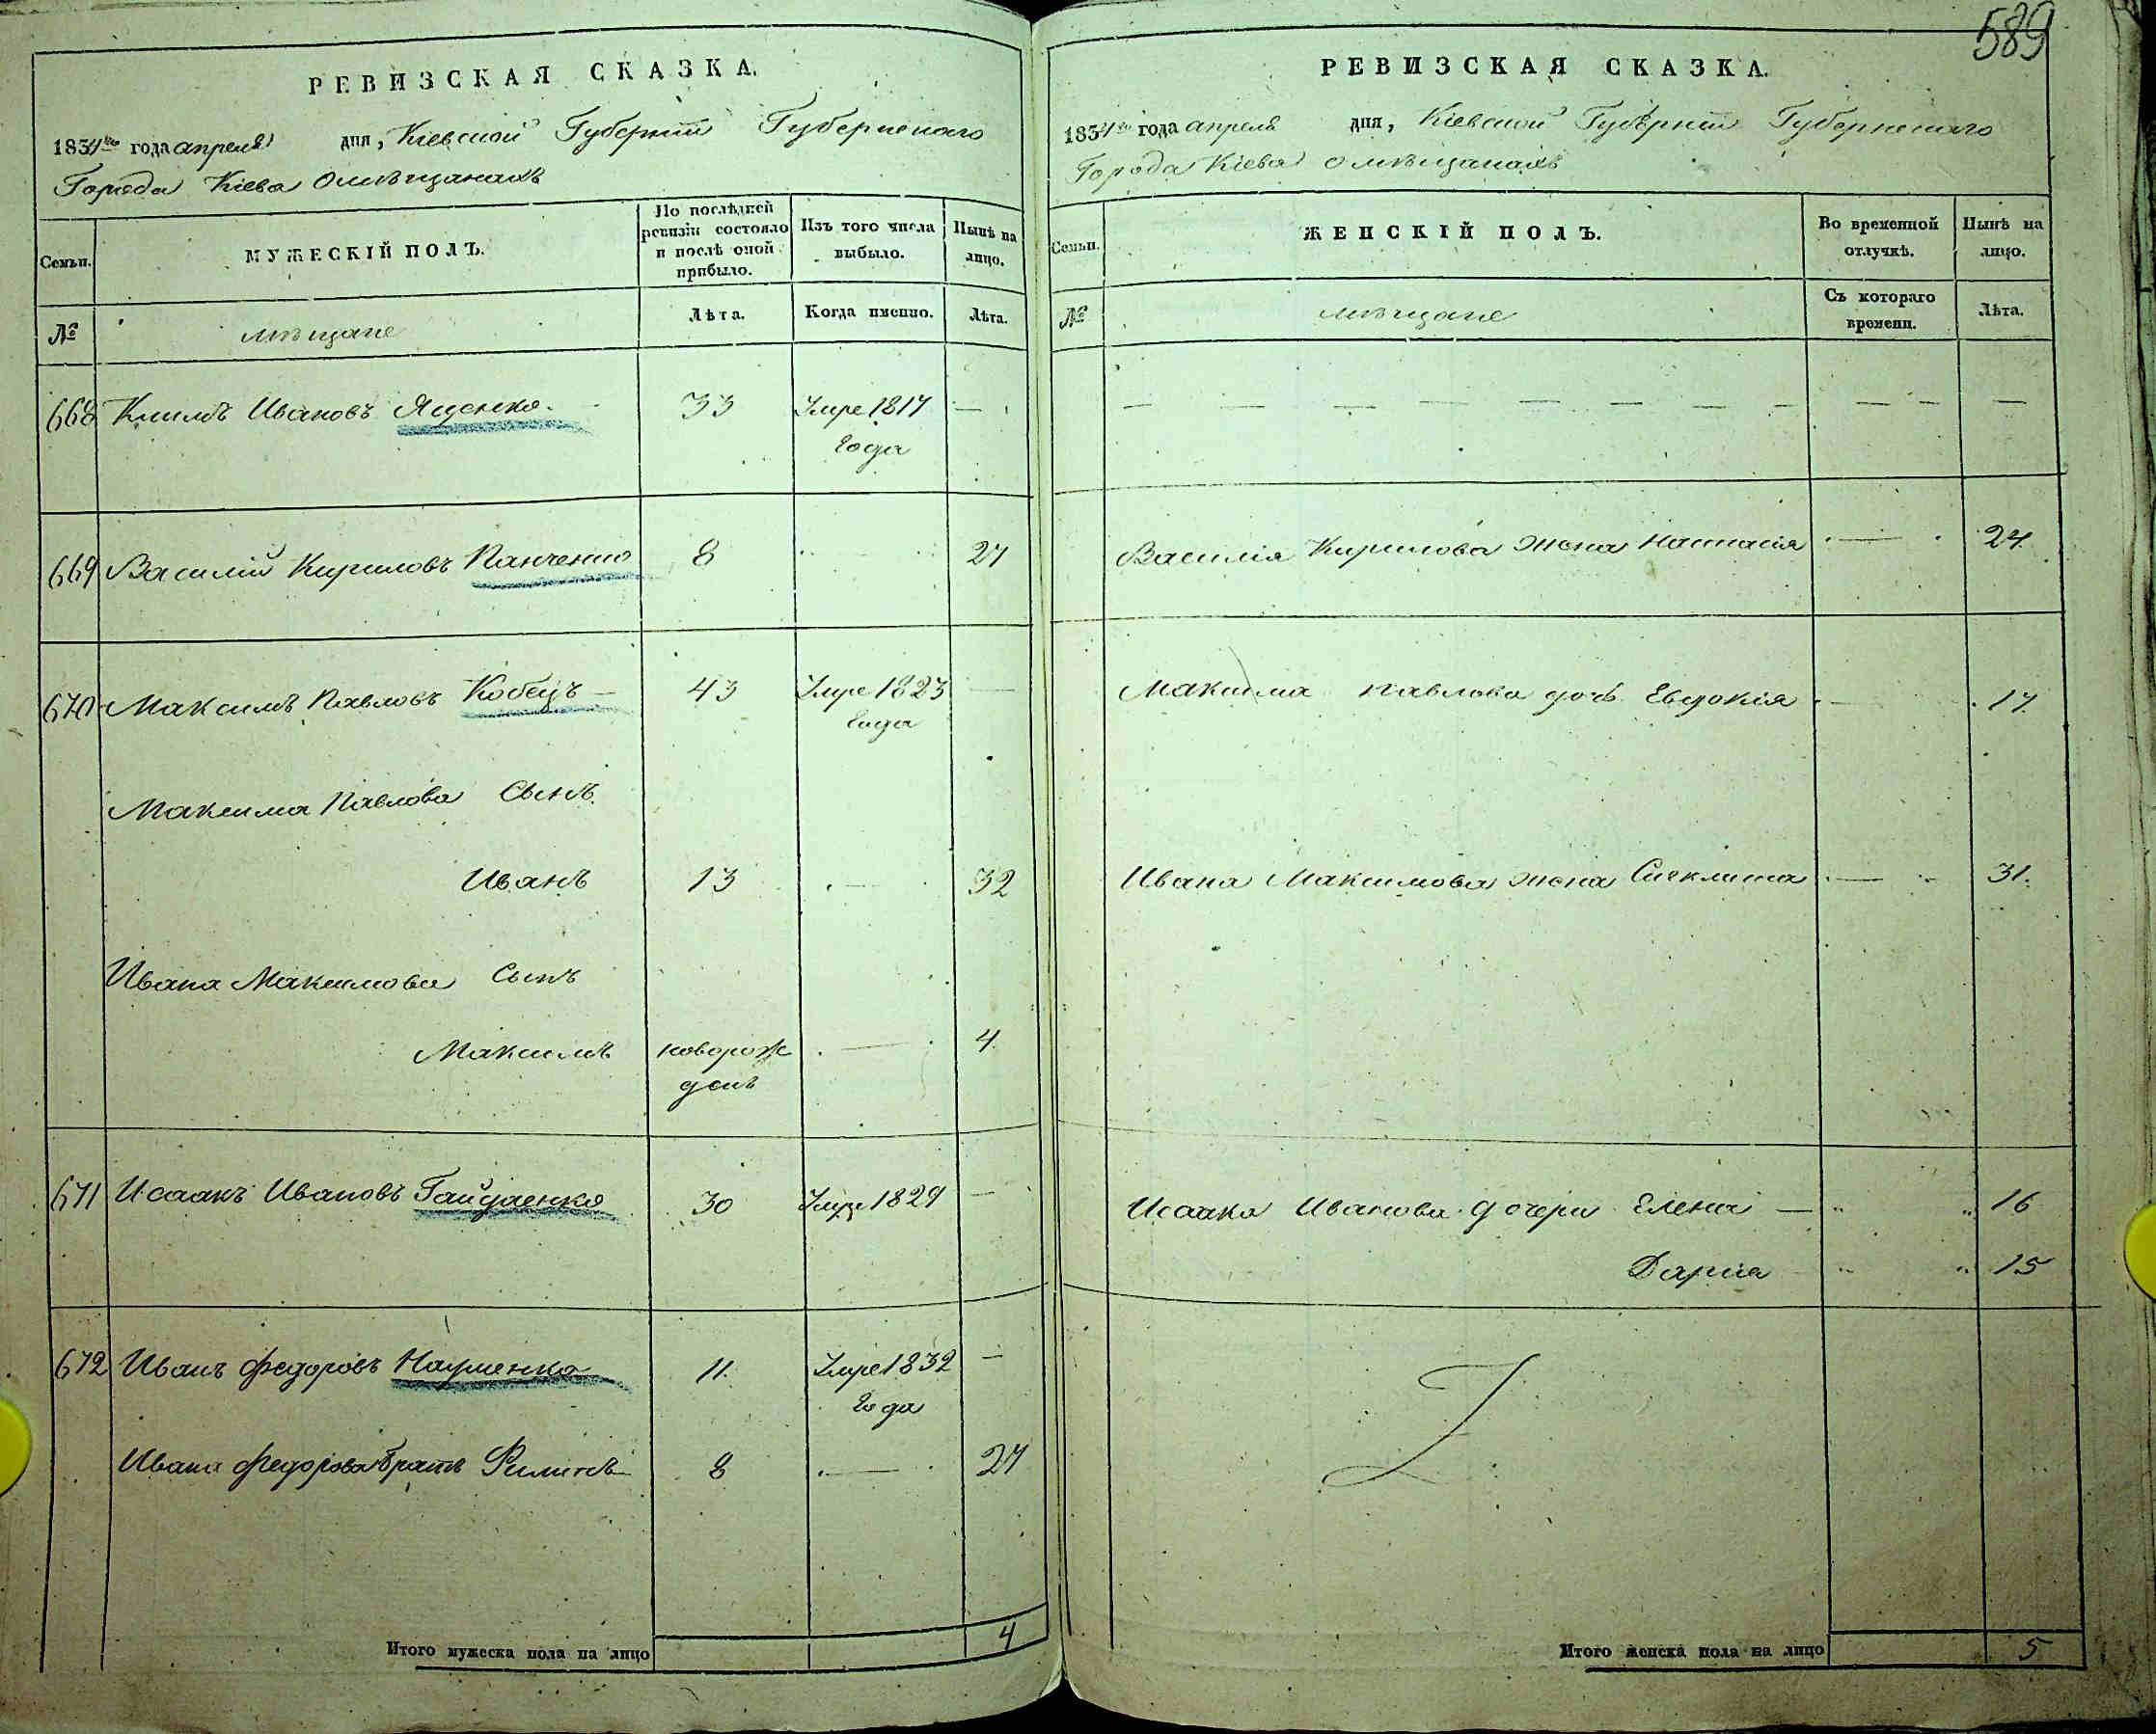 589
РЕВИЗСКАЯ СКАЗКА.
1834го года апреля дня, Кіевской Губерніи Губернскаго
Города Кіева о мѣщанахъ
Семьи.
МУЖЕСКІЙ ПОЛЪ.
По послѣдней ревизіи состояло и послѣ оной прибыло.
Изъ того числа выбыло.
Нынѣ на лицо.
№
мѣщане
Лѣта.
Когда именно.
Лѣта.
668 Климъ Ивановъ Яценко. 33 Умре 1817 —
года
669 Василій Кириловъ Панченко 8 27
670 Максимъ Павловъ Кобецъ — 43 Умре 1823 —
года
Максима Павлова Сынъ
Иванъ 13 — 32
Ивана Максимова Сынъ
Максимъ новорож — 4
денъ
671 Исаакъ Ивановъ Гайдаенко 30 Умре 1829 —
672 Иванъ Федоровъ Науменко 11. Умре 1832 —
года
Ивана Федорова братъ Филипъ 8 — 27
Итого мужеска пола на лицо 4
РЕВИЗСКАЯ СКАЗКА.
1834го года апреля дня, Кіевской Губерніи Губернскаго
Города Кіева о мѣщанахъ
Семьи.
ЖЕНСКІЙ ПОЛЪ.
Во временной отлучкѣ.
Нынѣ на лицо.
№
мѣщане
Съ котораго времени.
Лѣта.
— — — — — — — — — — — — —
Василія Кирилова жена Настасія — 24.
Максима Павлова дочь Евдокія — 17.
Ивана Максимова жена Сиклита — 31.
Исаака Иванова дочери Елена — " " 16
Дарія " " 15
Итого женска пола на лицо 5